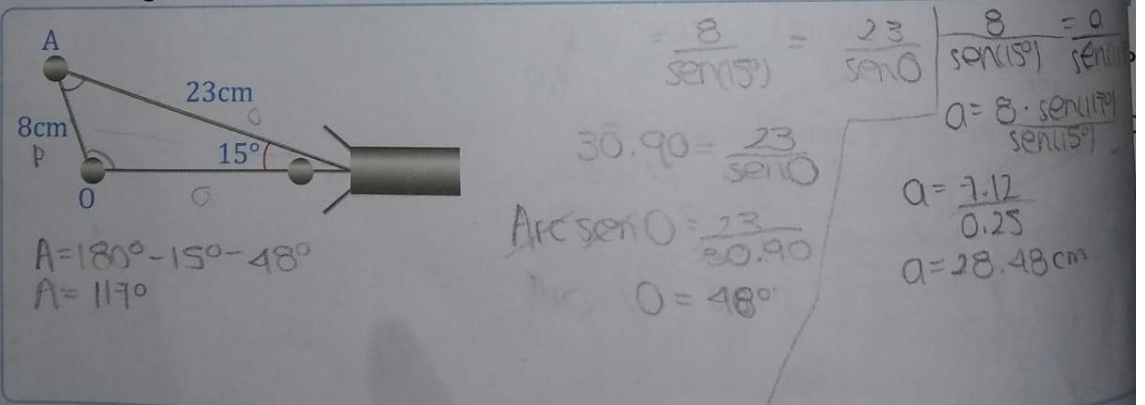 A
23cm
o
8cm
p
15°
O
a
A=180°-15°-48°
A= 117°
= 8/sen(15°) = 23/senO
30.90= 23/senO
Arc senO = 23/30.90
O = 48°
8/sen(15°) = a/sen(117°
a= 8 · sen(117°)/sen(15°)
a= 7.12/0.25
a=28.48cm